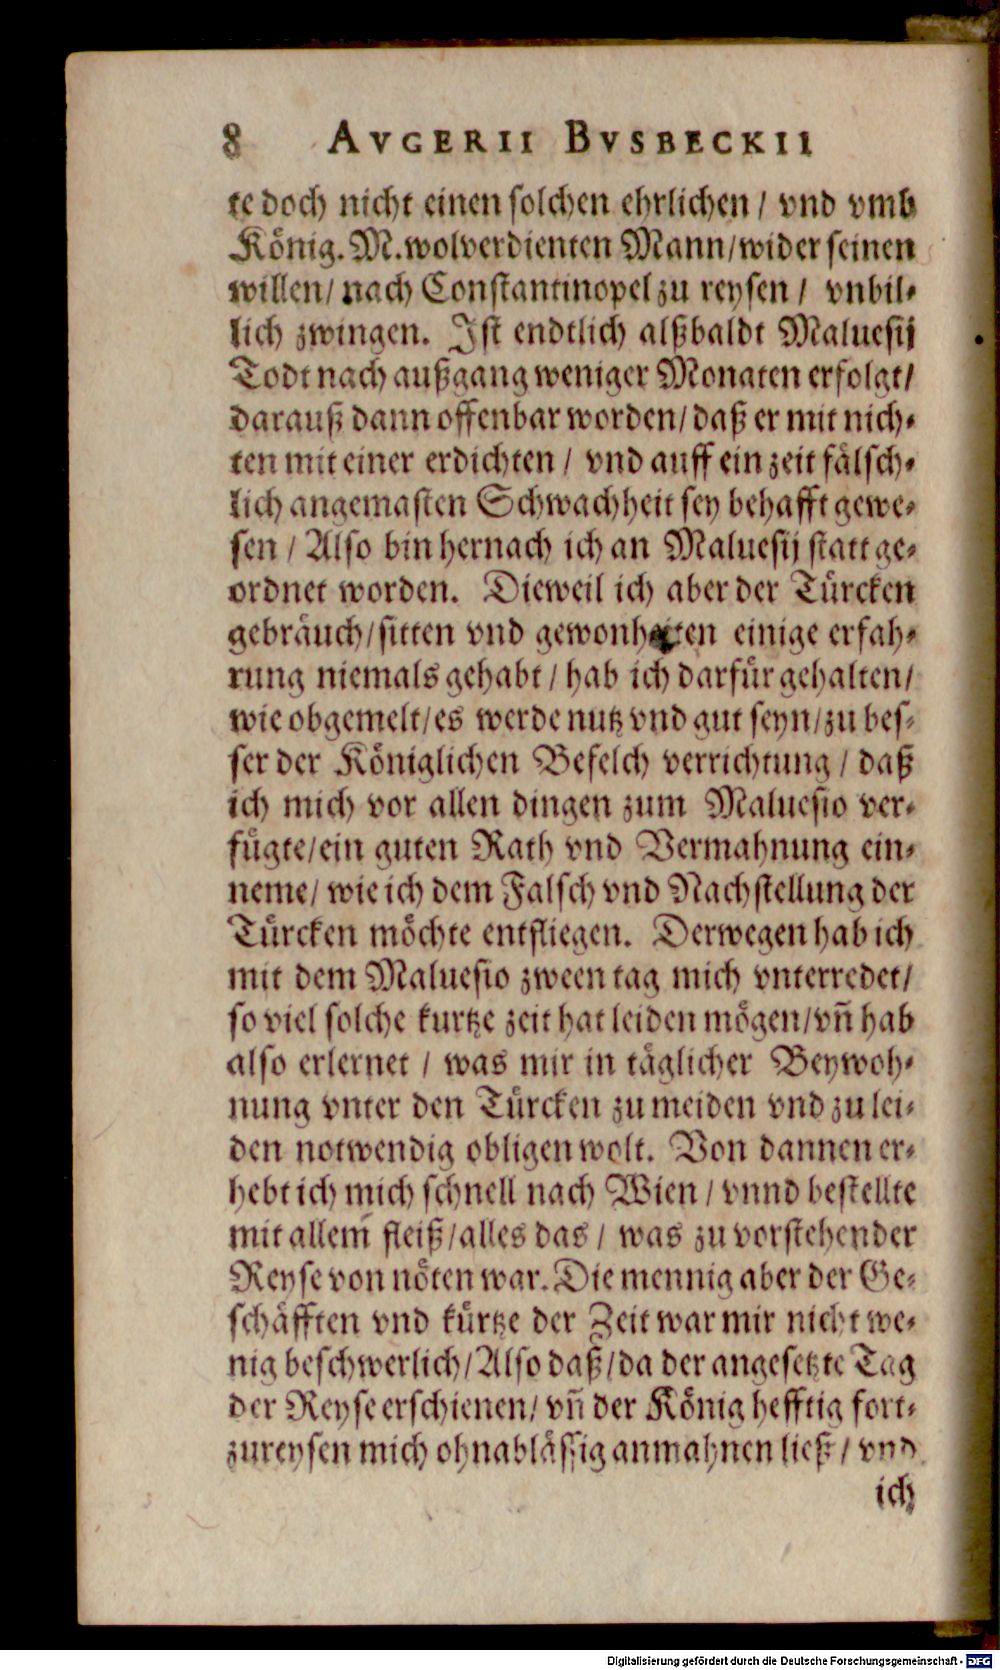 8 AVGERII BVSBECKII
te doch nicht einen solchen ehrlichen / vnd vmb
König. M. wolverdienten Mann / wider seinen
willen / nach Constantinopel zu reysen / vnbil-
lich zwingen. Ist endtlich alßbaldt Maluesij
Todt nach außgang weniger Monaten erfolgt /
darauß dann offenbar worden / daß er mit nich-
ten mit einer erdichten / vnd auff ein zeit fälsch-
lich angemasten Schwachheit sey behafft gewe-
sen / Also bin hernach ich an Maluesij statt ge-
ordnet worden. Dieweil ich aber der Türcken
gebräuch / sitten vnd gewonheiten einige erfah-
rung niemals gehabt / hab ich darfür gehalten /
wie obgemelt / es werde nutz vnd gut seyn / zu bes-
ser der Königlichen Befelch verrichtung / daß
ich mich vor allen dingen zum Maluesio ver-
fügte / ein guten Rath vnd Vermahnung ein-
neme / wie ich dem Falsch vnd Nachstellung der
Türcken möchte entfliegen. Derwegen hab ich
mit dem Maluesio zween tag mich vnterredet /
so viel solche kurtze zeit hat leiden mögen / vn̄ hab
also erlernet / was mir in täglicher Beywoh-
nung vnter den Türcken zu meiden vnd zu lei-
den notwendig obligen wolt. Von dannen er-
hebt ich mich schnell nach Wien / vnnd bestellte
mit allem̄ fleiß / alles das / was zu vorstehender
Reyse von nöten war. Die mennig aber der Ge-
schäfften vnd kürtze der Zeit war mir nicht we-
nig beschwerlich / Also daß / da der angesetzte Tag
der Reyse erschienen / vn̄ der König hefftig fort-
zureysen mich ohnablässig anmahnen ließ / vnd
ich
Digitalisierung gefördert durch die Deutsche Forschungsgemeinschaft - DFG